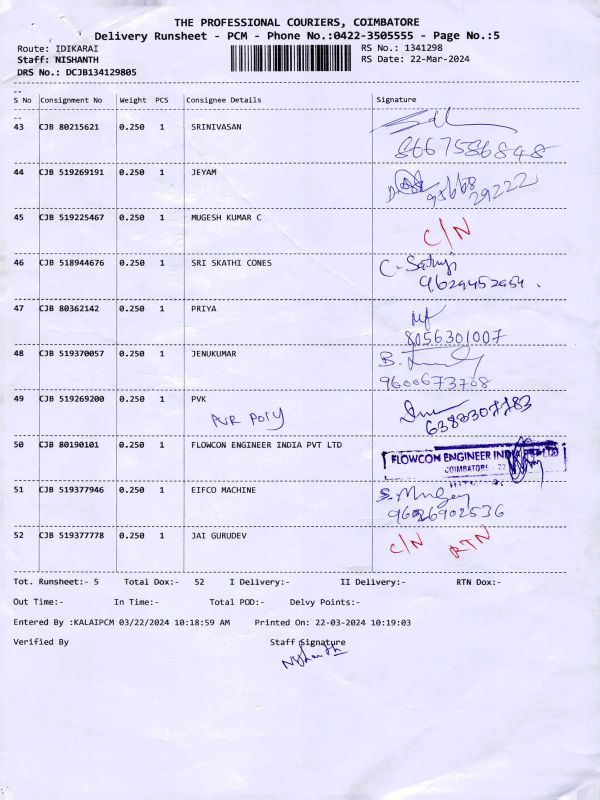 THE PROFESSIONAL COURIERS, COIMBATORE
Delivery Runsheet - PCM - Phone No.:0422-3505555 - Page No.:5
Route: IDIKARAI RS No.: 1341298
Staff: NISHANTH RS Date: 22-Mar-2024
DRS No.: DCJB134129805
S No Consignment No Weight PCS Consignee Details Signature
43 CJB 80215621 0.250 1 SRINIVASAN
8667586848
44 CJB 519269191 0.250 1 JEYAM
95668 29222
45 CJB 519225467 0.250 1 MUGESH KUMAR C
C/N
46 CJB 518944676 0.250 1 SRI SKATHI CONES
9629452954.
47 CJB 80362142 0.250 1 PRIYA
8056301007
48 CJB 519370057 0.250 1 JENUKUMAR
9600673708
49 CJB 519269200 0.250 1 PVK
PVR POLY 6383307783
50 CJB 80190101 0.250 1 FLOWCON ENGINEER INDIA PVT LTD
FLOWCON ENGINEER INDIA
COIMBATORE - 22
51 CJB 519377946 0.250 1 EIFCO MACHINE
9626902536
52 CJB 519377778 0.250 1 JAI GURUDEV
C/N RTN
Tot. Runsheet:- 5 Total Dox:- 52 I Delivery:- II Delivery:- RTN Dox:-
Out Time:- In Time:- Total POD:- Delvy Points:-
Entered By :KALAIPCM 03/22/2024 10:18:59 AM Printed On: 22-03-2024 10:19:03
Verified By Staff Signature
Nishanth